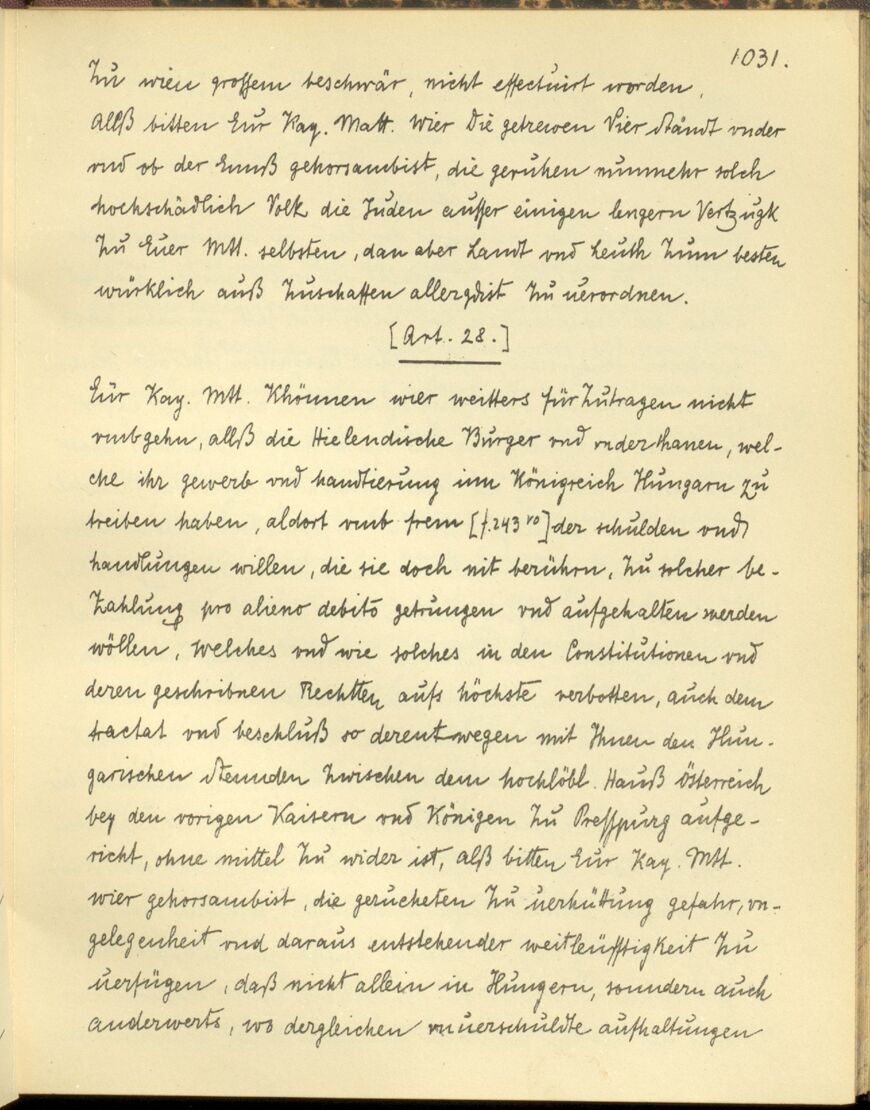 1031.
Zu wien grossem beschwär, nicht effectuirt worden,
Allß bitten Eur Kay. Matt. Wier die getrewen Vier Ständt vnder
vnd ob der Ennß gehorsambist, die geruhen nunmehr solch
hochschädlich Volk die Juden ausser einigen lengern Vertzugk
Zu Euer Mtt. selbsten, dan aber Landt vnd Leuth Zum besten
würklich auß Zuschaffen allergdist Zu uerordnen.
[Art. 28.]
Eur Kay. Mtt. Khönnen wier weitters fürZutragen nicht
vmbgehn, allß die Hielendische Burger vnd vnderthanen, wel-
che ihr gewerb vnd handtierung inn Königreich Hungarn zu
treiben haben, aldort vmb frem [f. 243 vo] der schulden vnd
handlungen willen, die sie doch nit berührn, Zu solcher be-
Zahlung pro alieno debito getrungen vnd aufgehalten werden
wöllen, Welches vnd wie solches in den Constitutionen vnd
deren geschribnen Rechtten aufs höchste verbotten, auch dem
tractat vnd beschluß so derentwegen mit Ihnen den Hun-
garischen Stennden Zwischen dem hochlöbl. Hauß Österreich
bey den vorigen Kaisern vnd Königen Zu Presspurg aufge-
richt, ohne mittel Zu wider ist, alß bitten Eur Kay. Mtt.
wier gehorsambist, die gerucheten Zu uerhüttung gefahr, vn-
gelegenheit vnd daraus entstehender weitleüfftigkeit Zu
uerfügen, daß nicht allein in Hungern, sonndern auch
anderwerts, wo dergleichen vnuerschuldte aufhaltungen